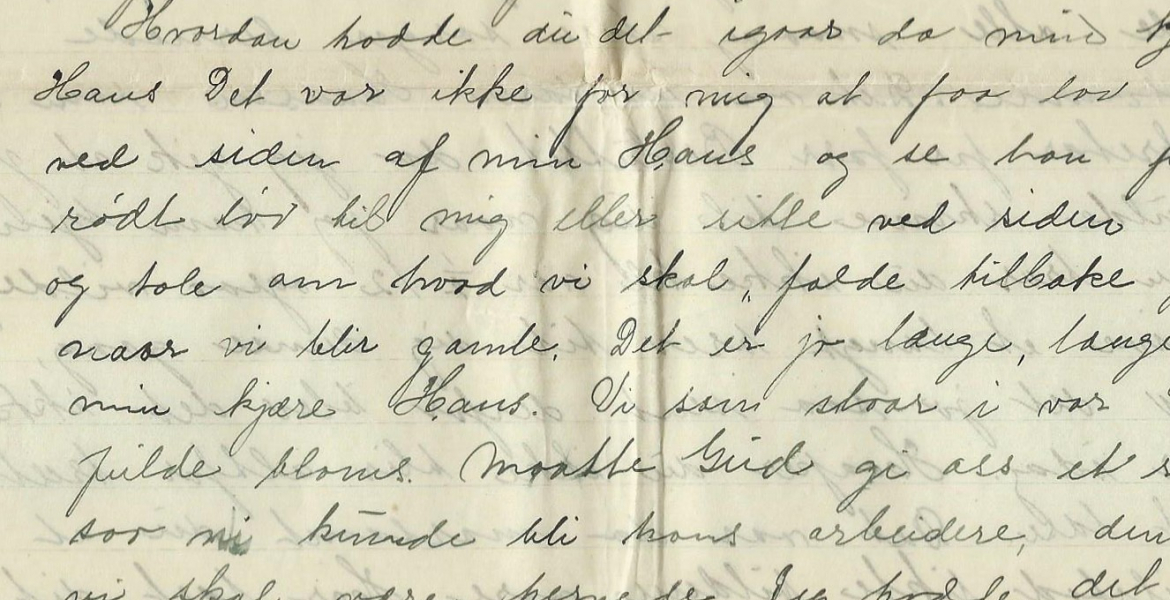 Hvordan hadde du det igaar da min
Hans Det var ikke for mig at faa lov
ved siden af min Hans og se han
rödt lov til mig eller sitte ved siden
og tale om hvad vi skal falde tilbake
naar vi blir gamle. Det er jo længe, længe
min kjære Hans. Vi som staar i vor
fulde bloms. Maatte Gud gi oss et
saa vi kunde bli hans arbeidere, den
vi skal være Jeg hadde det